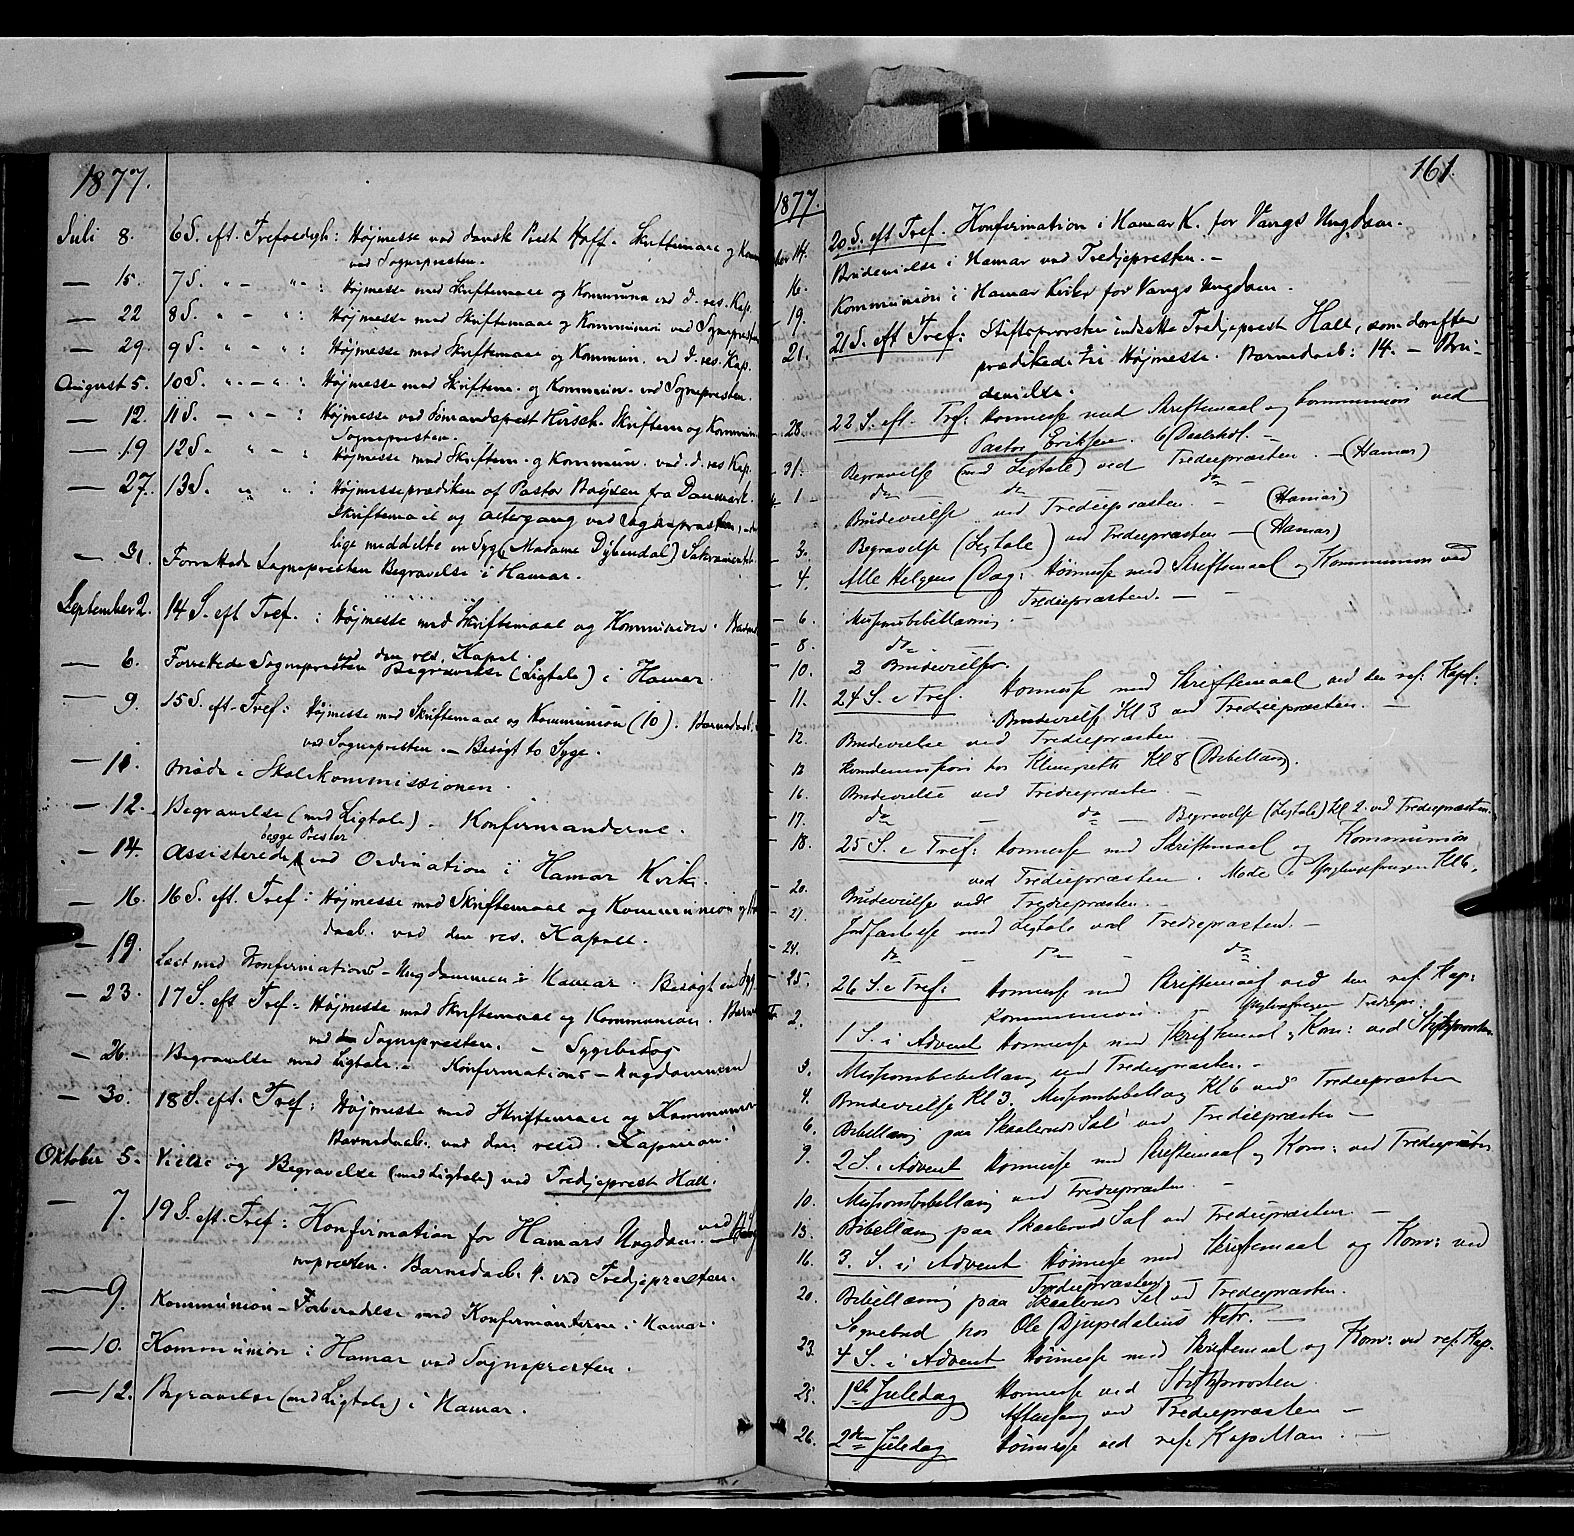 1877.
Juli 8. 6 S. eft. Trefoldigh: Højmesse ved dansk Prest Hoff. Skriftemaal og Kom
ved Sognepresten.
— 15. 7 S. " - " - : Højmesse med Skriftemaal og Kommunion ved d. res. Kap.
— 22 8 S. " - " : Højmesse med Skriftemaal og Kommunion ved Sognepresten
— 29. 9 S. " - " : Højmesse med Skriftemaal og Kommun. ved d. res. Kap.
August 5. 10 S. " - " : Højmesse med Skriftem. og Kommun. ved Sognepresten.
— 12. 11 S. - " - : Højmesse ved Sømandsprest Hirsch. Skriftem og Kommun.
Sognepresten.
— 19 12 S. " - : Højmesse med Skriftem. og Kommun. ved d. res Kap.
— 27. 13 S. " " : Højmesseprædiken af Pastor Boysen fra Danmark.
Skriftemaal og Altergang ved Sognepresten,
lige meddelte en Syg (Madame Dybendal) Sakramentet.
— 31. Forrettede Sognepresten Begravelse i Hamar.
September 2. 14 S. eft Tref. : Højmesse med Skriftemaal og Kommunion. Barned
ved den res. Kapel.
— 6. Forrettede Sognepresten Begravelse (Ligtale) i Hamar.
— 9. 15 S. eft. Tref: Højmesse med Skriftemaal og Kommunion (10). Barnedaab.
ved Sognepresten. — Besøgt to Syge.
— 11. Møde i Skolekommissionen.
— 12. Begravelse (med Ligtale) - Konfirmanderne.
begge Prester
— 14. Assisterede ved Ordination i Hamar Kirke.
— 16. 16 S. eft. Tref: Højmesse med Skriftemaal og Kommunion og
daab. ved den res. Kapell.
— 19. Læst med Konfirmations-Ungdommen i Hamar. Besøgt en Syg.
— 23. 17 S. eft Tref - Højmesse med Skriftemaal og Kommunion. Barne
ved Sognepresten. — Sygebesøg
— 26. Begravelse med Ligtale. - Konfirmations-Ungdommen
— 30. 18 S. eft. Tref: Højmesse med Skriftemaal og Kommunion
Barnedaab. ved den resid. Kapellan.
Oktober 5. Vielse og Begravelse (med Ligtale) ved Tredjeprest Hall.
— 7. 19 S. eft. Tref: Konfirmation for Hamars Ungdom ved Sog
nepresten. Barnedaab. 4. ved Tredjepresten.
— 9. Kommunion-Forberedelse med Konfirmanterne i Hamar.
— 10. Kommunion i Hamar ved Sognepresten.
— 12. Begravelse (med Ligtale) i Hamar.
161.
1877.
14. 20 S. eft Tref. Konfirmation i Hamar K. for Vangs Ungdom.
16. Brudevielse i Hamar ved Tredjepresten. —
19. Kommunion i Hamar Kirke for Vangs Ungdom.
21. 21 S. eft Tref: Stiftsprovsten indsatte Tredjeprest Hall, som derefter
prædikede til Højmesse. Barnedaab: 14. — Bru-
devielse.
28. 22 S. eft. Tref: Høimesse med Skriftemaal og Communion ved
Pastor Eriksen. 6 Daabshdl. —
31. Begravelse (med Ligtale) ved Trediepræsten. — (Hamar)
1. do — do — do —
Brudevielse ved Trediepræsten. — (Hamar)
3. Begravelse (Ligtale) ved Trediepræsten — (Hamar)
4. Alle Helgens Dag: Høimesse med Skriftemaal og Kommunion ved
Trediepræsten. —
6. Missionsbibellæsning. —
8. do —
10. 2 Brudevielser.
11. 24 S. e Tref. Høimesse med Skriftemaal ved den res. Kapl:
Brudevielse Kl 3 ved Trediepræsten. —
12. Brudevielse ved Trediepræsten —
12 hos Kl 8 (Bibellæsn).
16. Brudevielse ved Trediepræsten. —
17. do — do — Begravelse (Ligtale) Kl 2. ved Trediepræsten.
18. 25 S. e Tref: Høimesse med Skriftemaal og Kommunion
ved Trediepræsten. Møde i Ynglingeforeningen Kl 6.
20. Brudevielse ved Trediepræsten. —
21. Jordfæstelse med Ligtale ved Trediepræsten. —
24. do — do — do
25. 26 S. e Tref: Høimesse med Skriftemaal ved den res. Kap:
Kommunion. Tredjepr.
2. 1 S. i Advent Høimesse med Skriftemaal og Kom: ved Stiftsprovsten.
3. Missionsbibellæsn ved Trediepræsten. —
4. Brudevielse Kl 3. Missionsbibellæsn Kl 6 ved Trediepræsten
6. Bibellæsn paa Skaalerud Sal ved Trediepræsten —
9. 2 S. i Advent Høimesse med Skriftemaal og Kom: ved Trediepræsten
10. Missionsbibellæsn ved Trediepræsten. —
13. Bibellæsn paa Skaalerud Sal ved Trediepræsten. —
16. 3. S. i Advent Høimesse med Skriftemaal og Kom: ved
Trediepræsten
20. Bibellæsning paa Skaalerud Sal ved Trediepræsten.
Sognebud hos Ole Djupedalens Hstr. —
23. 4 S. i Advent Høimesse med Skriftemaal og Kom: ved res. Kap.
25. 1ste Juledag Høimesse ved Stiftsprovsten.
Aftensang ved Trediepræsten —
26. 2den Juledag Høimesse ved res. Kapellan. —